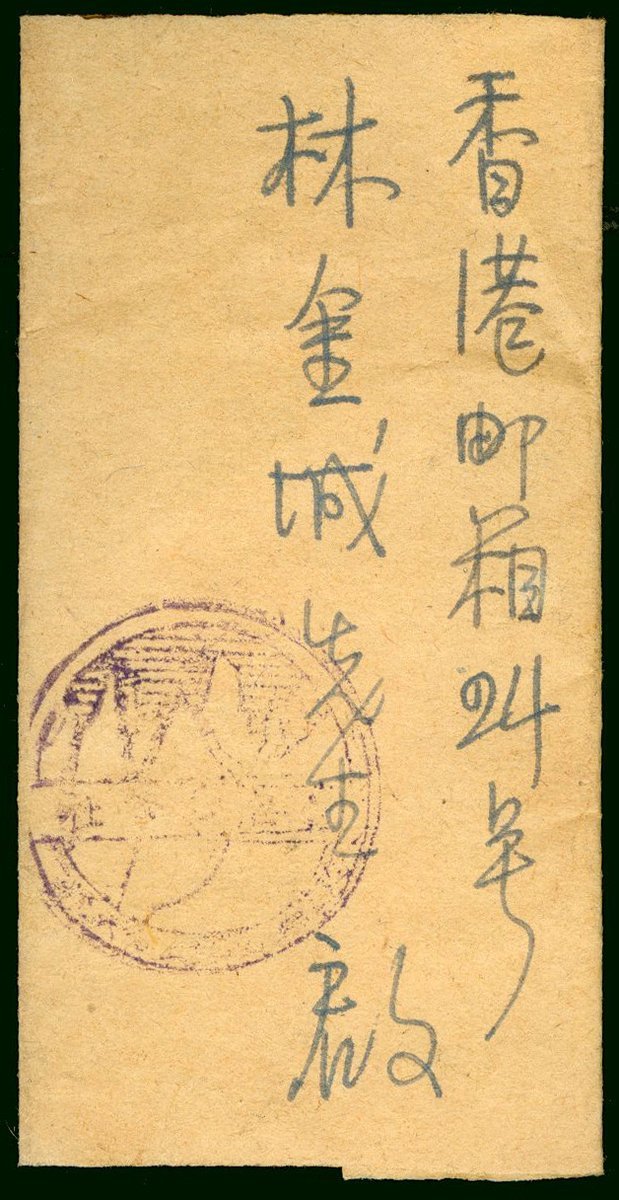 香港邮箱24号
林金城先生 啟
社